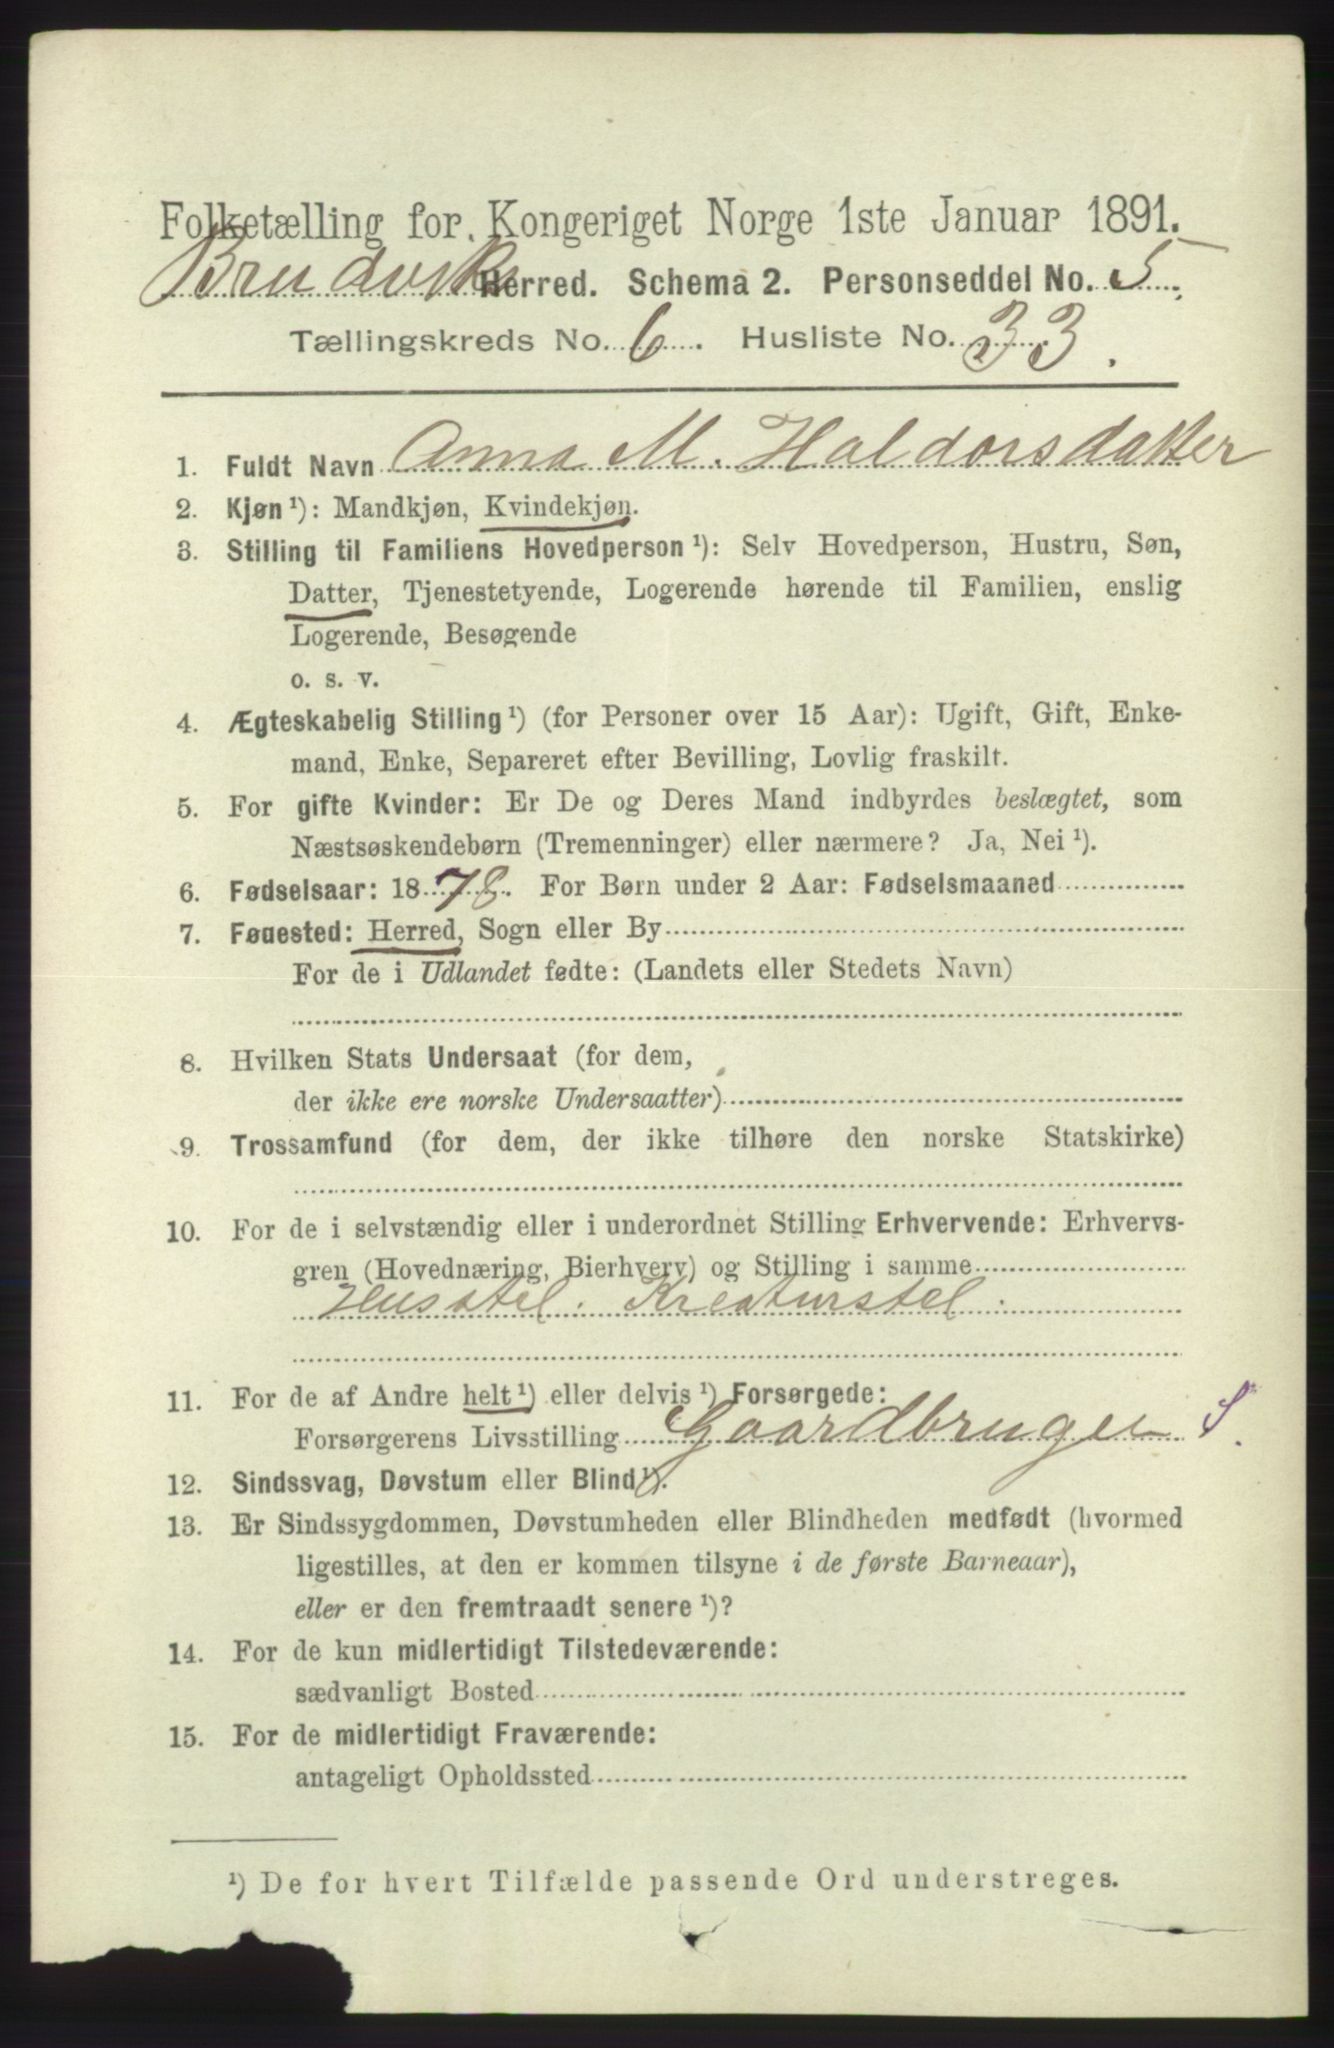 Folketælling for Kongeriget Norge 1ste Januar 1891.
Bruvik Herred. Schema 2. Personseddel No. 5.
Tællingskreds No. 6. Husliste No. 33.
1. Fuldt Navn Anna M. Haldorsdatter
2. Kjøn ¹): Mandkjøn, Kvindekjøn.
3. Stilling til Familiens Hovedperson ¹): Selv Hovedperson, Hustru, Søn,
Datter, Tjenestetyende, Logerende hørende til Familien, enslig
Logerende, Besøgende
o. s. v.
4. Ægteskabelig Stilling ¹) (for Personer over 15 Aar): Ugift, Gift, Enke-
mand, Enke, Separeret efter Bevilling, Lovlig fraskilt.
5. For gifte Kvinder: Er De og Deres Mand indbyrdes beslægtet, som
Næstsøskendebørn (Tremenninger) eller nærmere? Ja, Nei ¹).
6. Fødselsaar: 1878. For Børn under 2 Aar: Fødselsmaaned
7. Fødested: Herred, Sogn eller By
For de i Udlandet fødte: (Landets eller Stedets Navn)
8. Hvilken Stats Undersaat (for dem,
der ikke ere norske Undersaatter)
9. Trossamfund (for dem, der ikke tilhøre den norske Statskirke)
10. For de i selvstændig eller i underordnet Stilling Erhvervende: Erhvervs-
gren (Hovednæring, Bierhverv) og Stilling i samme
Husstel. Kreaturstel.
11. For de af Andre helt ¹) eller delvis ¹) Forsørgede:
Forsørgerens Livsstilling Gaardbruger S.
12. Sindssvag, Døvstum eller Blind ¹).
13. Er Sindssygdommen, Døvstumheden eller Blindheden medfødt (hvormed
ligestilles, at den er kommen tilsyne i de første Barneaar),
eller er den fremtraadt senere ¹)?
14. For de kun midlertidigt Tilstedeværende:
sædvanligt Bosted
15. For de midlertidigt Fraværende:
antageligt Opholdssted
¹) De for hvert Tilfælde passende Ord understreges.